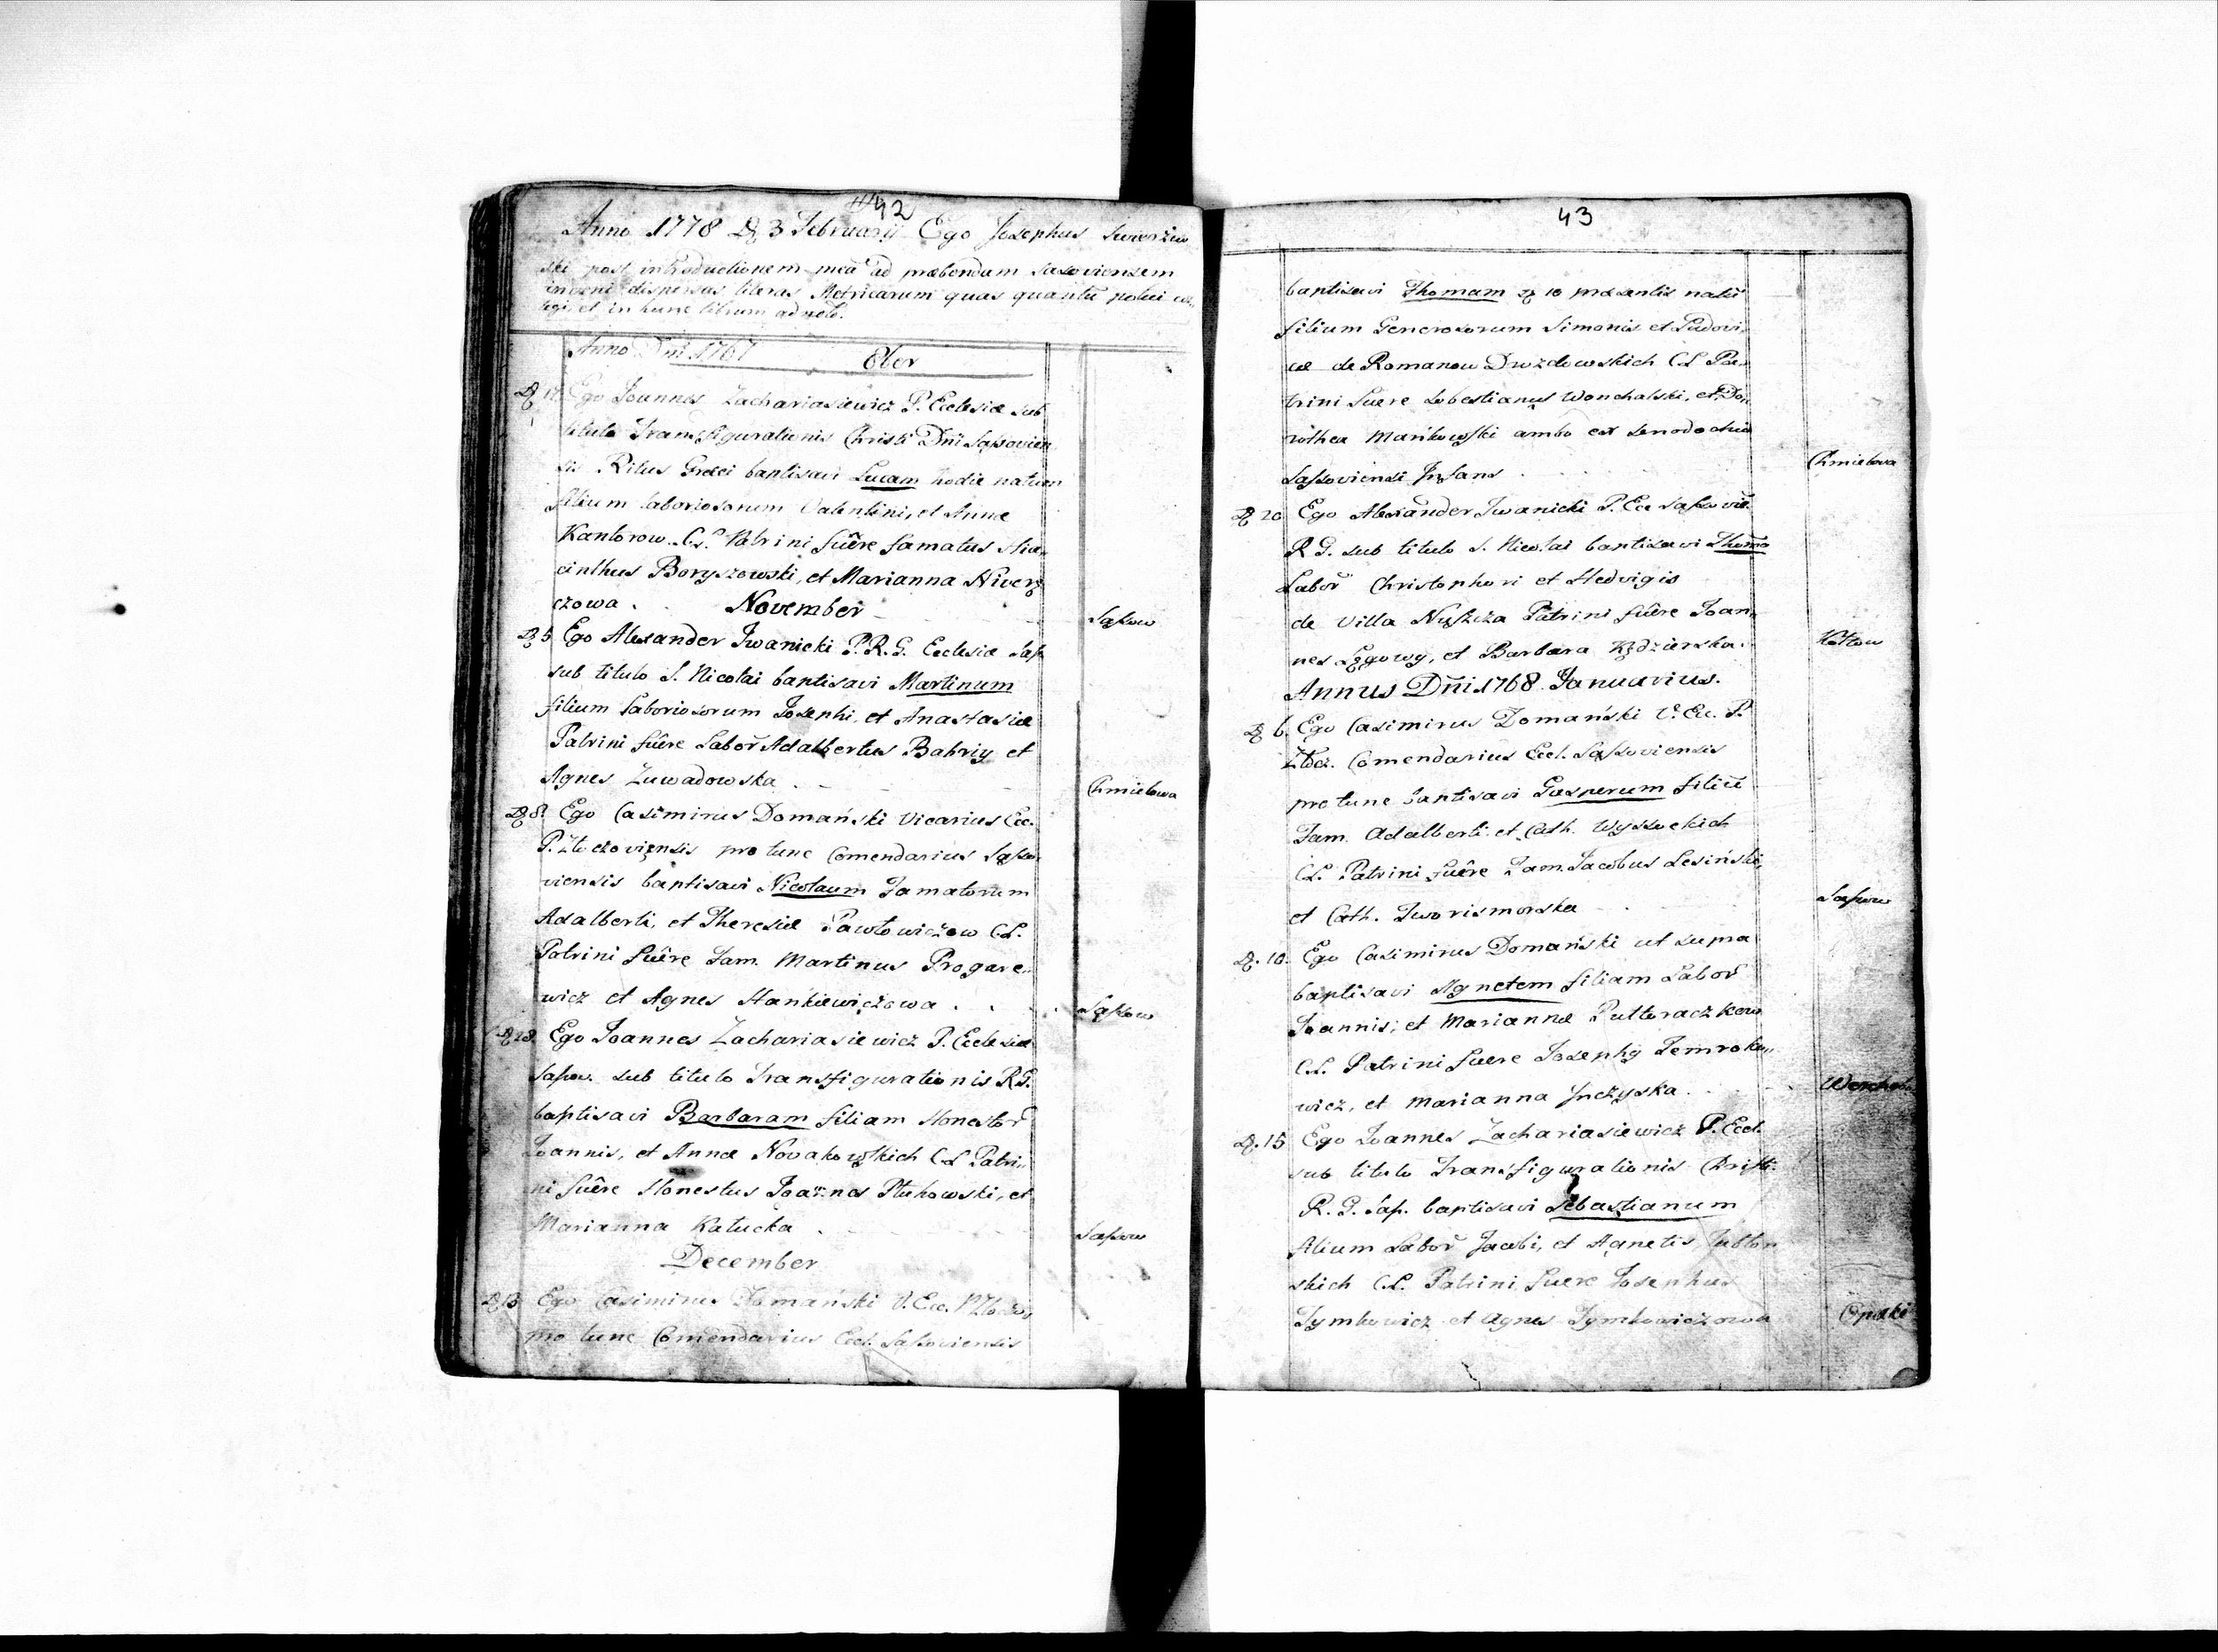 42
Anno 1778 D 3 Februarij Ego Josephus Swierzew
ski post introductionem meã ad præbendam Sasoviensem
inveni dispersas literas Metricarum quas quantũ potui col
legi, et in hunc librum adnoto.
Anno Dni 1767 8ber
D 17 Ego Joannes Zachariasiewicz P. Ecclesiæ sub
titulo Transfigurationis Christi Dñi Sassovien
sis Ritus Græci baptisavi Lucam hodie natum
filium laboriosorum Valentini, et Annæ
Kantorow. C.L. Patrini fuêre famatus Hia,,
cinthus Boryszowski, et Marianna
czowa. November
Sassow
D 5 Ego Alexander Iwanicki P. R. G. Ecclesiæ Sass.
sub titulo S. Nicolai baptisavi Martinum
filium laboriosorum Josephi, et Anastasiæ
Patrini fuêre Labor̃ Adalbertus Bahriy et
Agnes Zuwadowska
Chmielowa
D 8. Ego Casimirus Domański Vicarius Ecc.
P. Złoczoviensis pro tunc Comendarius Sasso
viensis baptisavi Nicolaum Famatorum
Adalberti, et Theresiæ Pawłowiczow C.L.
Patrini fuêre Fam. Martinus Progare,,
wicz et Agnes Hankiewiczowa . .
Sassow
D 28. Ego Joannes Zachariasiewicz P. Ecclesiæ
Sassov. sub titulo Transfigurationis R.G.
baptisavi Barbaram filiam Honestor̃
Joannis, et Annæ Novakowskich C.L. Patri,,
ni fuêre Honestus Joannes Ptuhowski, et
Marianna Kałucka
Sassow
December
D 13 Ego Casimirus Domański V. Ecc. P. Złoczov,,
pro tunc Comendarius Eccl. Sassoviensis
43
baptisavi Thomam D 10 præsentis natũ
filium Generosorum Simonis et Ludovi,,
cæ de Romanow Drozdowskich C.L. Pa,,
trini fuere Sebestianus Wonchalski, et Do,,
rothea Mańkowski ambo ex Senodochio
Sassoviensi Infans
Chmielowa
D 20 Ego Alexander Iwanicki P. Ecc Sassovie.
R G. sub titulo S. Nicolai baptisavi Thomã
Labor̃ Christophori et Hedvigis
de Villa Nyszcza Patrini fuêre Joan,,
nes Łęgowy, et Barbara Kędzierska.
Kołtow
Annus Dñi 1768 Januarius.
D 6. Ego Casimirus Domański V. Ecc. P.
Złocz. Comendarius Eccl. Sassoviensis
pro tunc baptisavi Gasperum filiũ
Fam. Adalberti et Cath. Wyssockich
C.L. Patrini fuêre Fam. Jacobus Lesiński,
et Cath. Tworismorska
Sassow
D. 10. Ego Casimirus Domański ut supra
baptisavi Agnetem filiam Labor̃
Joannis, et Mariannæ Putteraczkow
C.L. Patrini fuere Josephg Temroko,,
wicz, et Marianna Inczyska.
D. 15 Ego Joannes Zachariasiewicz P. Eccl.
sub titulo Transfigurationis Christi
R. G. Sass. baptisavi Sebastianum
filium Labor̃ Jacobi, et Agnetis Jabłon
skich C.L. Patrini fuere Josephus
Tymkowicz et Agnes Tymkowiczowa
Opaki